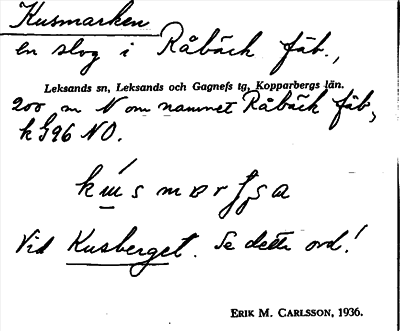 Kusmarken
en slog i Råbäck fäb.,
Leksands sn, Leksands och Gagnefs tg, Kopparbergs län.
200 m N om namnet Råbäck fäb,
k 96 NO.
Vid Kusberget. Se detta ord!
ERIK M. CARLSSON, 1936.